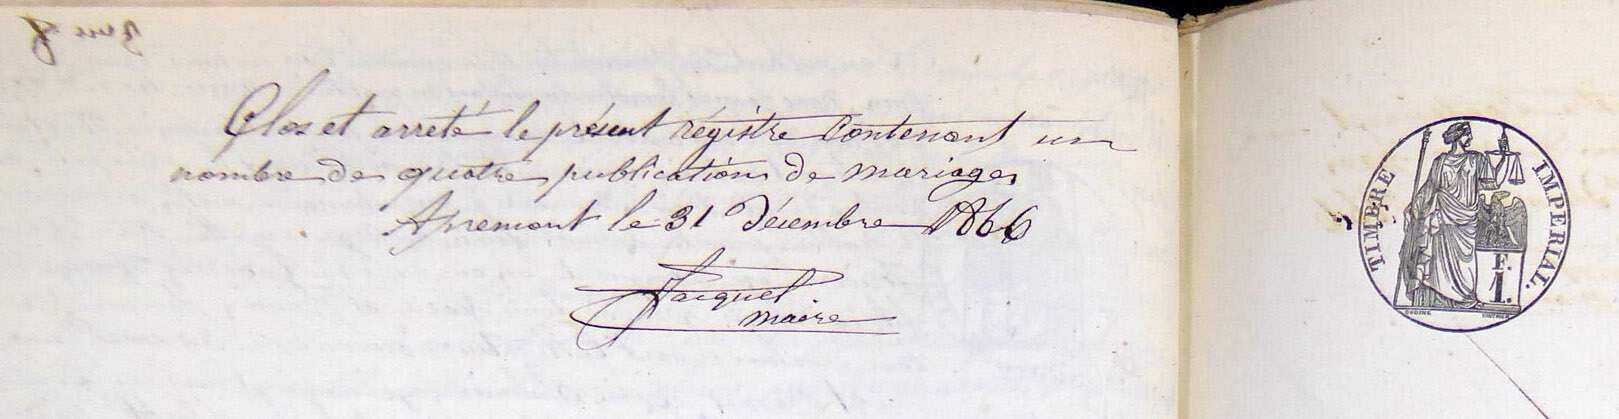 Clos et arreté le présent régistre contenant un
nombre de quatre publications de mariages
Apremont le 31 Décembre 1866
Jacquet
maire
TIMBRE IMPERIAL.
F.
1.
OUDINÉ